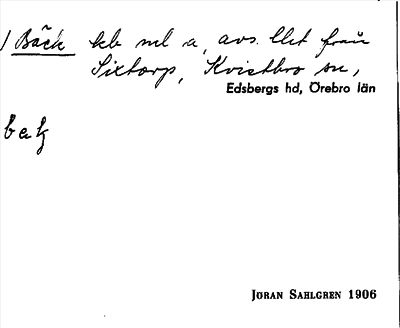 1 Bäck kb nv a, avs. llet från
Sixtorp, Kvistbro sn,
Edsbergs hd, Örebro län
bek
JÖRAN SAHLGREN 1906